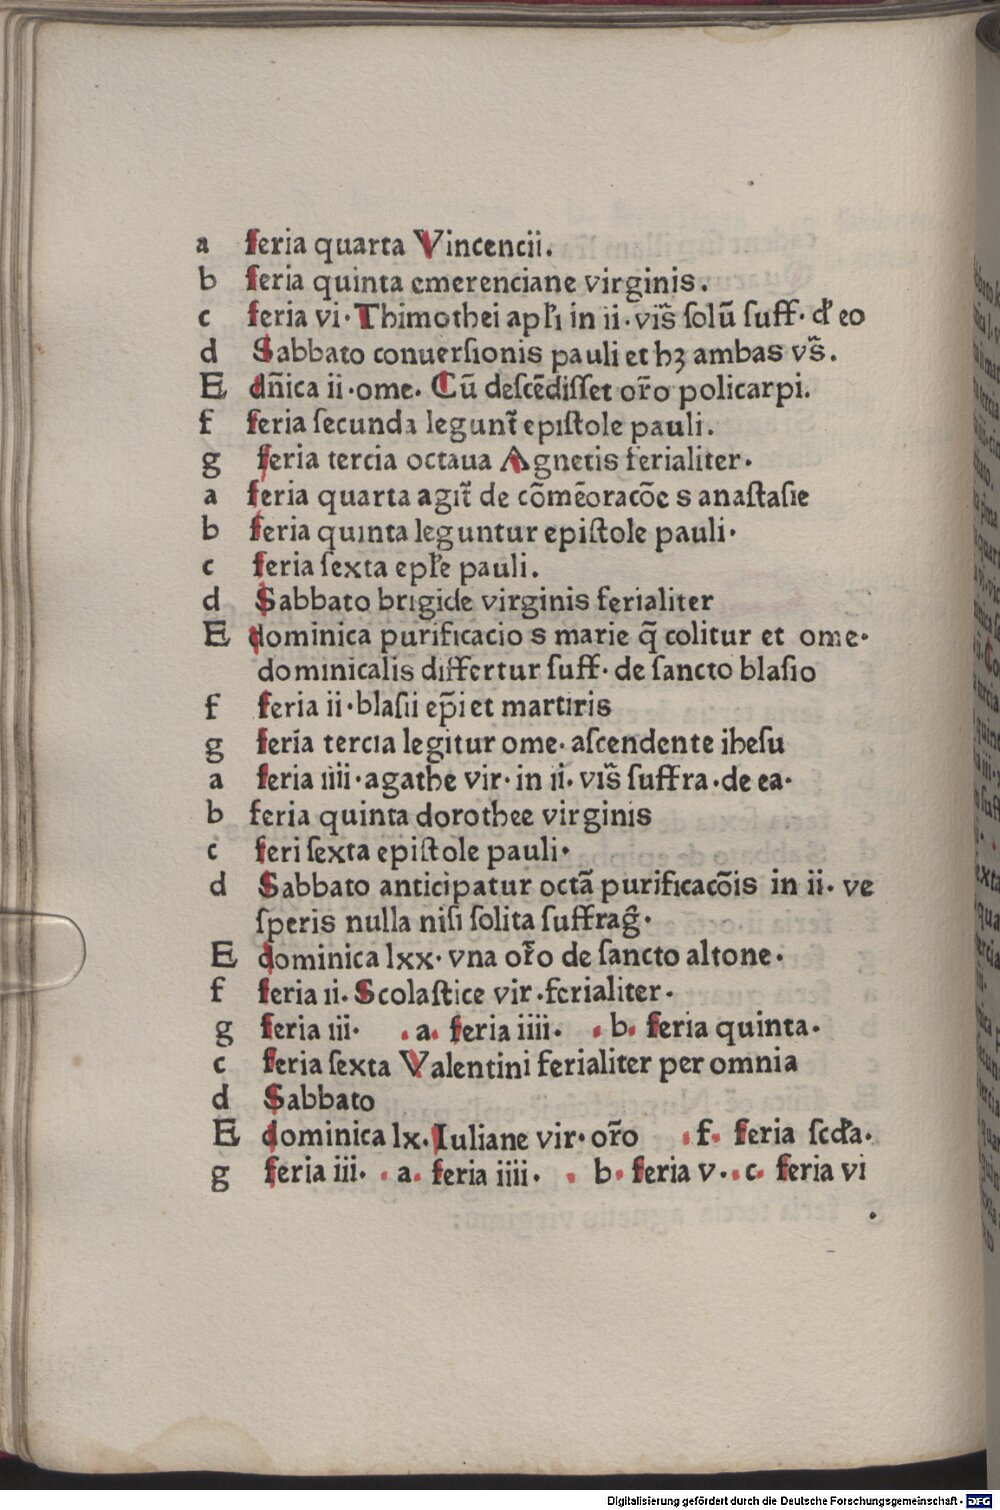 a feria quarta Vincencii.
b feria quinta emerenciane virginis.
c feria vi · Thimothei apl̃i in ii · vis̃ ſolū ſuff · d̃ eo
d Sabbato conuerſionis pauli et hꝫ ambas vs̃.
E dñica ii · ome. Cū deſcēdiſſet or̃o policarpi.
f feria ſecunda legunt̃ epiſtole pauli.
g feria tercia octaua Agnetis ferialiter.
a feria quarta agit̃ de cōmēoracōe s anaſtaſie
b feria quinta leguntur epiſtole pauli·
c feria ſexta epl̃e pauli.
d Sabbato brigide virginis ferialiter
E dominica purificacio s marie q̃ colitur et ome·
dominicalis differtur ſuff· de ſancto blaſio
f feria ii · blaſii ep̃i et martiris
g feria tercia legitur ome· aſcendente iheſu
a feria iiii · agathe vir· in ii. vis̃ ſuffra · de ea·
b feria quinta dorothee virginis
c feri ſexta epiſtole pauli·
d Sabbato anticipatur octā purificacōis in ii. ve
ſperis nulla niſi ſolita ſuffrag̃·
E dominica lxx· vna or̃o de ſancto altone·
f feria ii. Scolaſtice vir · ferialiter·
g feria iii· . a. feria iiii. . b. feria quinta.
c feria ſexta Valentini ferialiter per omnia
d Sabbato
E dominica lx. Iuliane vir· or̃o . f. feria ſcd̃a.
g feria iii. . a. feria iiii. . b. feria v. . c. feria vi
Digitalisierung gefördert durch die Deutsche Forschungsgemeinschaft - DFG